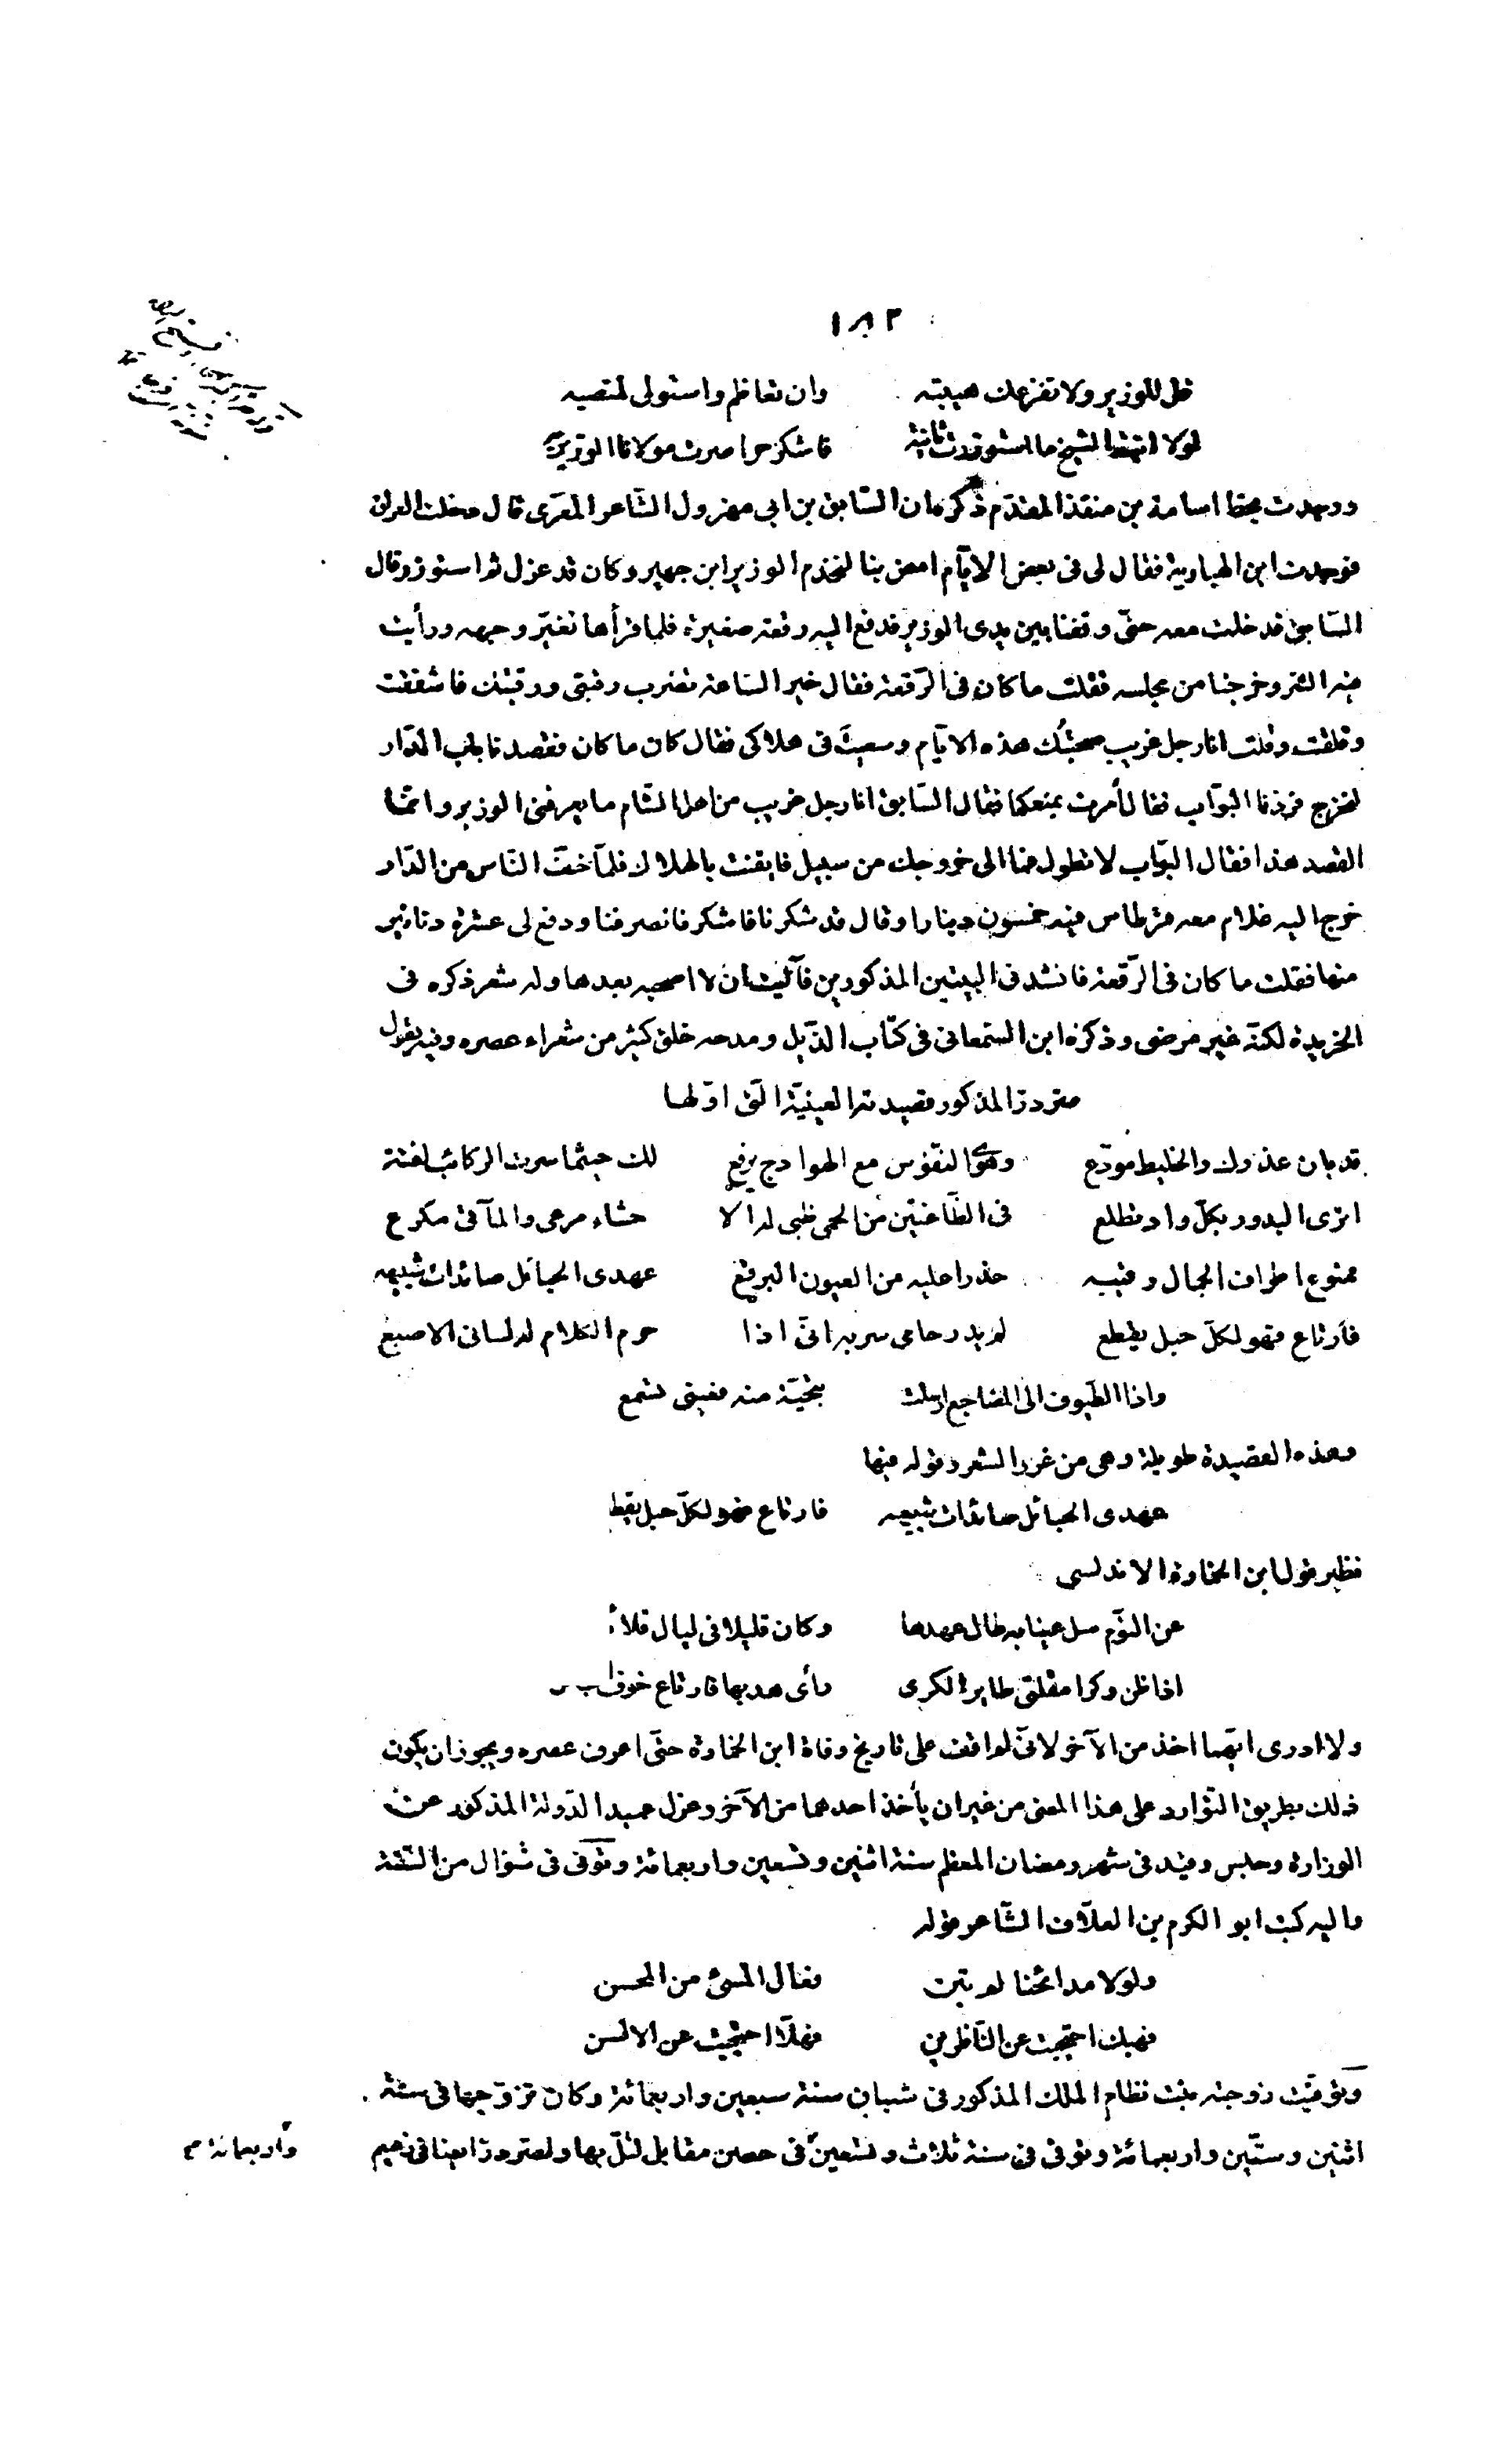 ١٨٢
قل للوزير ولا تفزعك هيبته وان تعاظم واستولى لمنصبه
لولا ابنة الشيخ ما استوزرت ثانية فاشكر حرا صرت مولانا الوزير به
ووجدت بخط اسامة بن منقذ المقدّم ذكره ان السّابق بن ابى مهزول الشّاعر المعرّى قال دخلت العراق
فوجدت ابن الهبارية فقال لى فى بعض الايّام امض بنا لنخدم الوزير ابن جهير وكان قد عزل ثم استوزر وقال
السّابق فدخلت معه حتّى وقفنا بين يدى الوزير فدفع اليه رقعة صغيرة فلما قرأها تغيّر وجهه ورأيت
فيه الشر وخرجنا من مجلسه فقلت ما كان فى الرّقعة فقال خير السّاعة تضرب رقبتى ورقبتك فاشفقت
وقلقت وقلت انا رجل غريب صحبتك هذه الايّام وسعيت فى هلاكى فقال كان ما كان فقصدنا باب الدّار
لنخرج فردّنا البوّاب فقال أمرت بمنعكما فقال السّابق انا رجل غريب من اهل الشّام ما يعرفنى الوزير وانّما
القصد هذا فقال البوّاب لا تطول فما الى خروجك من سبيل فايقنت بالهلاك فلمّا خفّ النّاس من الدّار
خرج اليه غلام معه قرطاس فيه خمسون دينارا وقال قد شكرنا فاشكر فانصرفنا ودفع لى عشرة دنانير
منها فقلت ما كان فى الرّقعة فانشدنى البيتين المذكورين فآليت ان لا اصحبه بعدها وله شعر ذكره فى
الخريدة لكنّه غير مرضى وذكره ابن السّمعانى فى كتاب الذّيل ومدحه خلق كثير من شعراء عصره وفيه يقول
صرّدرّ المذكور قصيدته العينيّة الّتى اوّلها
قد بان عذرك والخليط مودّع وهوى النّفوس مع الهوادج يرفع لك حيثما سرت الركائب لفتة
اترى البدور بكلّ واد تطلع فى الظّاعنين من الحمى ظبى له الا حشاء مرعى والمآقى مكرع
ممنوع اطراف الجمال رقيبه حذرا عليه من العيون البرقع عهدى الحبائل صائدات شبيهه
فارتاع فهو لكلّ حبل يقطع لم يدر حامى سربه انّى اذا حرم الكلام له لسانى الاصبع
واذا الطّيوف الى المضاجع ارسلت بتحيّة منه فعينى تسمع
وهذه القصيدة طويلة وهى من غرر الشعر وقوله فيها
عهدى الحبائل صائدات شبيهه فارتاع فهو لكلّ حبل يقط
نظير قول ابن الخمارة الاندلسى
عن النّوم سل عينا به طال عهدها وكان قليلا فى ليال قلائـ
اذا ظن وكرا مقلتى طاير الكرى رأى هدبها فارتاع خوف
ولا ادرى ايّهما اخذ من الآخر لانّى لم اقف على تاريخ وفاة ابن الخمارة حتّى اعرف عصره ويجوز ان يكون
ذلك بطريق التّوارد على هذا المعنى من غير ان يأخذ احدهما من الآخر وعزل عميد الدّولة المذكور عن
الوزارة وحبس وقيد فى شهر رمضان المعظم سنة اثنين وتسعين واربعمائة وتوفّى فى شوّال من السّنة
واليه كتب ابو الكرم بن العلّاف الشّاعر قوله
ولولا مدائحنا لم تبن فعال المسئ من المحسن
فهبك احتجبت عن النّاظرين فهلّا احتجبت عن الالسن
وتوفّيت زوجته بنت نظام الملك المذكور فى شبان سنة سبعين واربعمائة وكان تزوّجها فى سنة
اثنين وستّين واربعمائة وتوفى فى سنة ثلاث وتسعين فى حصن مقابل لتلّ بها ولصرّدرّ ايضا فى زعيم وأربعمائة